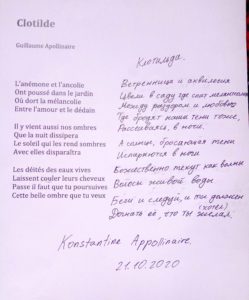 Clotilde
Guillaume Apollinaire
L'anémone et l'ancolie
Ont poussé dans le jardin
Où dort la mélancolie
Entre l'amour et le dédain
Il y vient aussi nos ombres
Que la nuit dissipera
Le soleil qui les rend sombres
Avec elles disparaîtra
Les déités des eaux vives
Laissent couler leurs cheveux
Passe il faut que tu poursuives
Cette belle ombre que tu veux
Клотильда.
Ветренница и аквилегия
Цвели в саду где спит меланхолия
Между и любовью
Где бродят наши тени тоже,
Рассеиваясь, в ночи.
А солнце, бросающее тени
Испарится в ночи
Божественно текут как волны
Волосы живой воды
Беги и следуй, и ты должен
(хотел)
Догнать её, что ты желал.
Konstantine Appollinaire.
21.10.2020